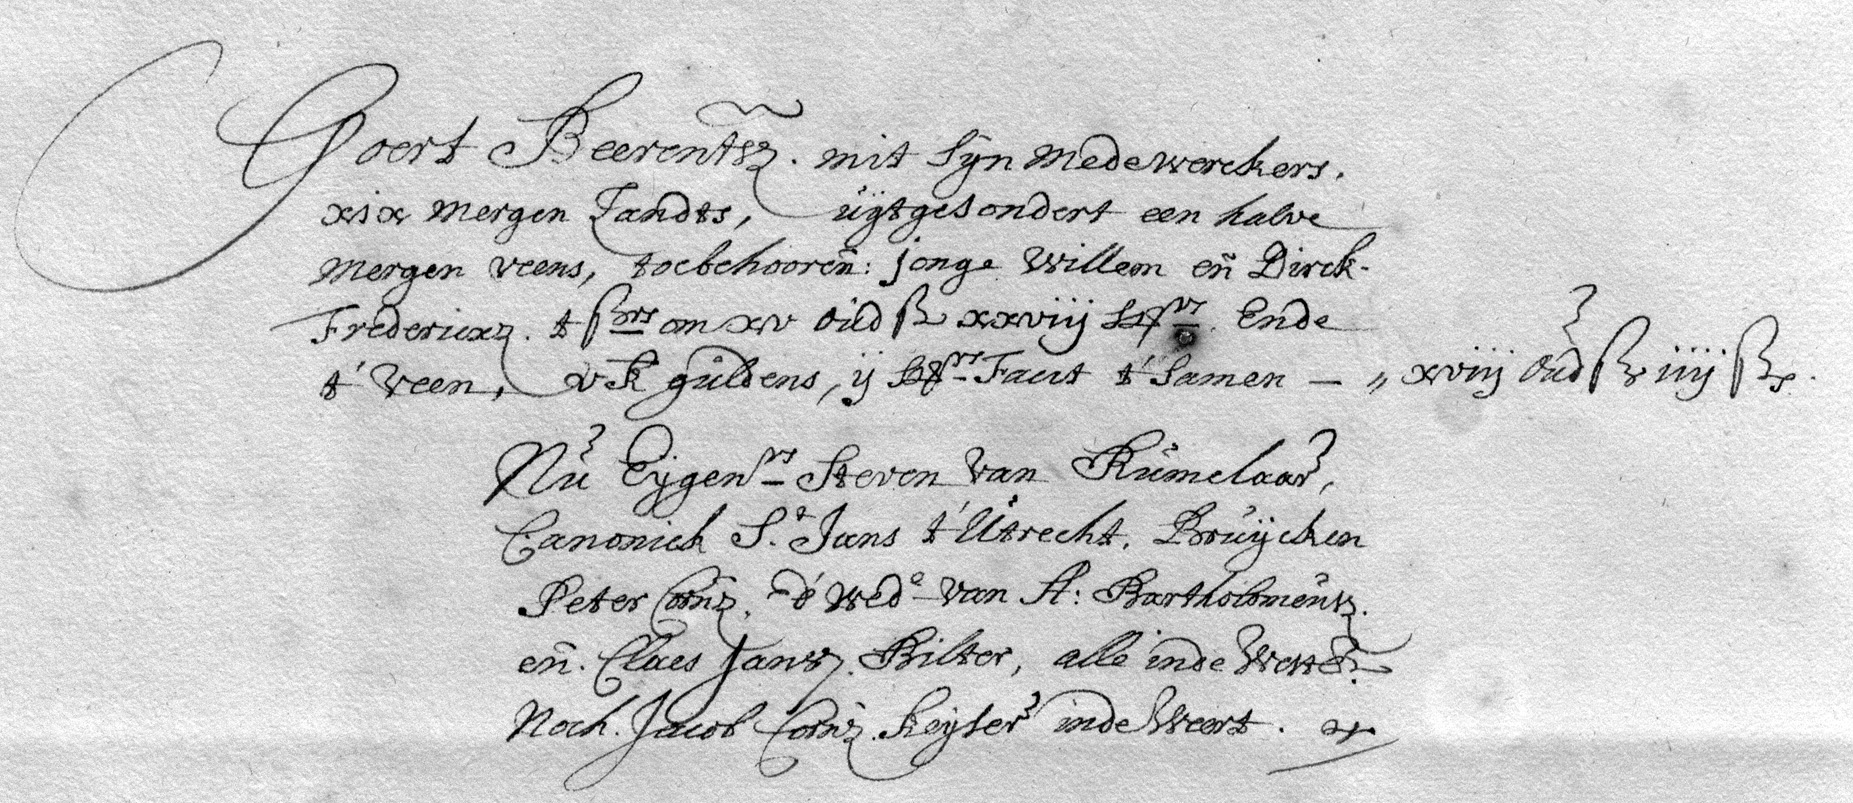 Goert Beerentsz. mit syn medewerckers,
xix mergen Landts, uijtgesondert een halve
mergen veens, toebehooren: jonge Willem en Dirck
Fredericxz. om xv oud xxviij Ende
t' veen, vK guldens, ij Facit t' samen — „ xviij oud iiij
Nu Eijgenrs Steven van Rumelaar,
Canonick St. Jans t' Utrecht. Bruijcken
Peter Cornz. d' wede van A: Bartholomeusz.
en. Claes Jansz. Bilter, alle inde
Noch. Jacob Cornz. Keyser inde Weert.